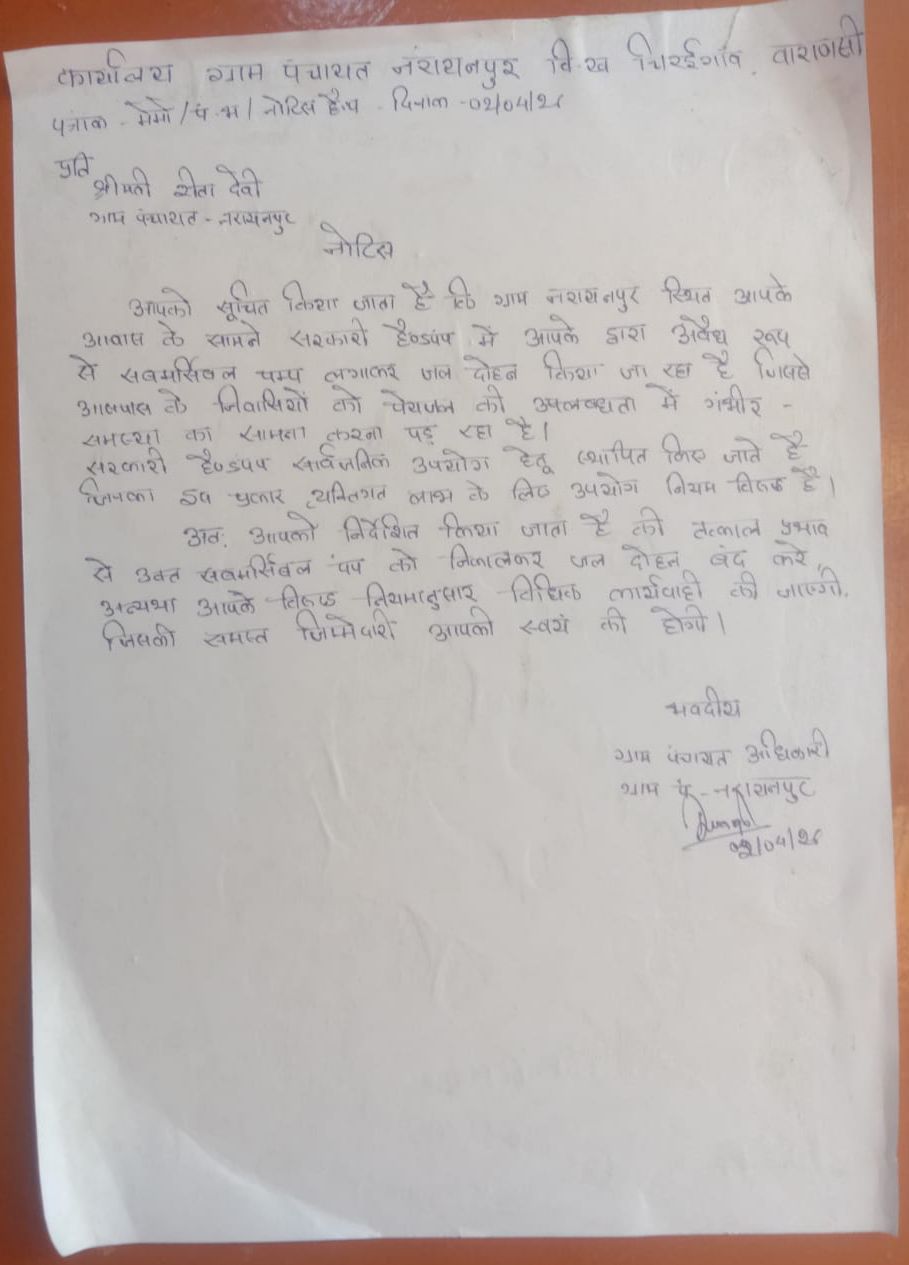 कार्यालय ग्राम पंचायत नरायनपुर वि.ख चिरईगाँव, वाराणसी
पत्रांक - मेमो / पं.भ / नोटिस है.प - दिनांक - 02/04/26
प्रति
श्रीमती रीता देवी
ग्राम पंचायत - नरायनपुर
नोटिस
आपको सूचित किया जाता है कि ग्राम नरायनपुर स्थित आपके
आवास के सामने सरकारी हैण्डपंप में आपके द्वारा अवैध रूप
से सबमर्सिबल पम्प लगाकर जल दोहन किया जा रहा है जिससे
आसपास के निवासियों को पेयजल की उपलब्धता में गंभीर -
समस्या का सामना करना पड़ रहा है।
सरकारी हैण्डपंप सार्वजनिक उपयोग हेतू स्थापित किए जाते है
जिसका इस प्रकार व्यक्तिगत लाभ के लिए उपयोग नियम विरूद्ध है।
अतः आपको निर्देशित किया जाता है की तत्काल प्रभाव
से उक्त सबमर्सिबल पंप को निकालकर जल दोहन बंद करे,
अन्यथा आपके विरूद्ध नियमानुसार विधिक कार्यवाही की जाएगी.
जिसकी समस्त जिम्मेदारी आपकी स्वयं की होगी।
भवदीय
ग्राम पंचायत अधिकारी
ग्राम पं - नरायनपुर
02/04/26